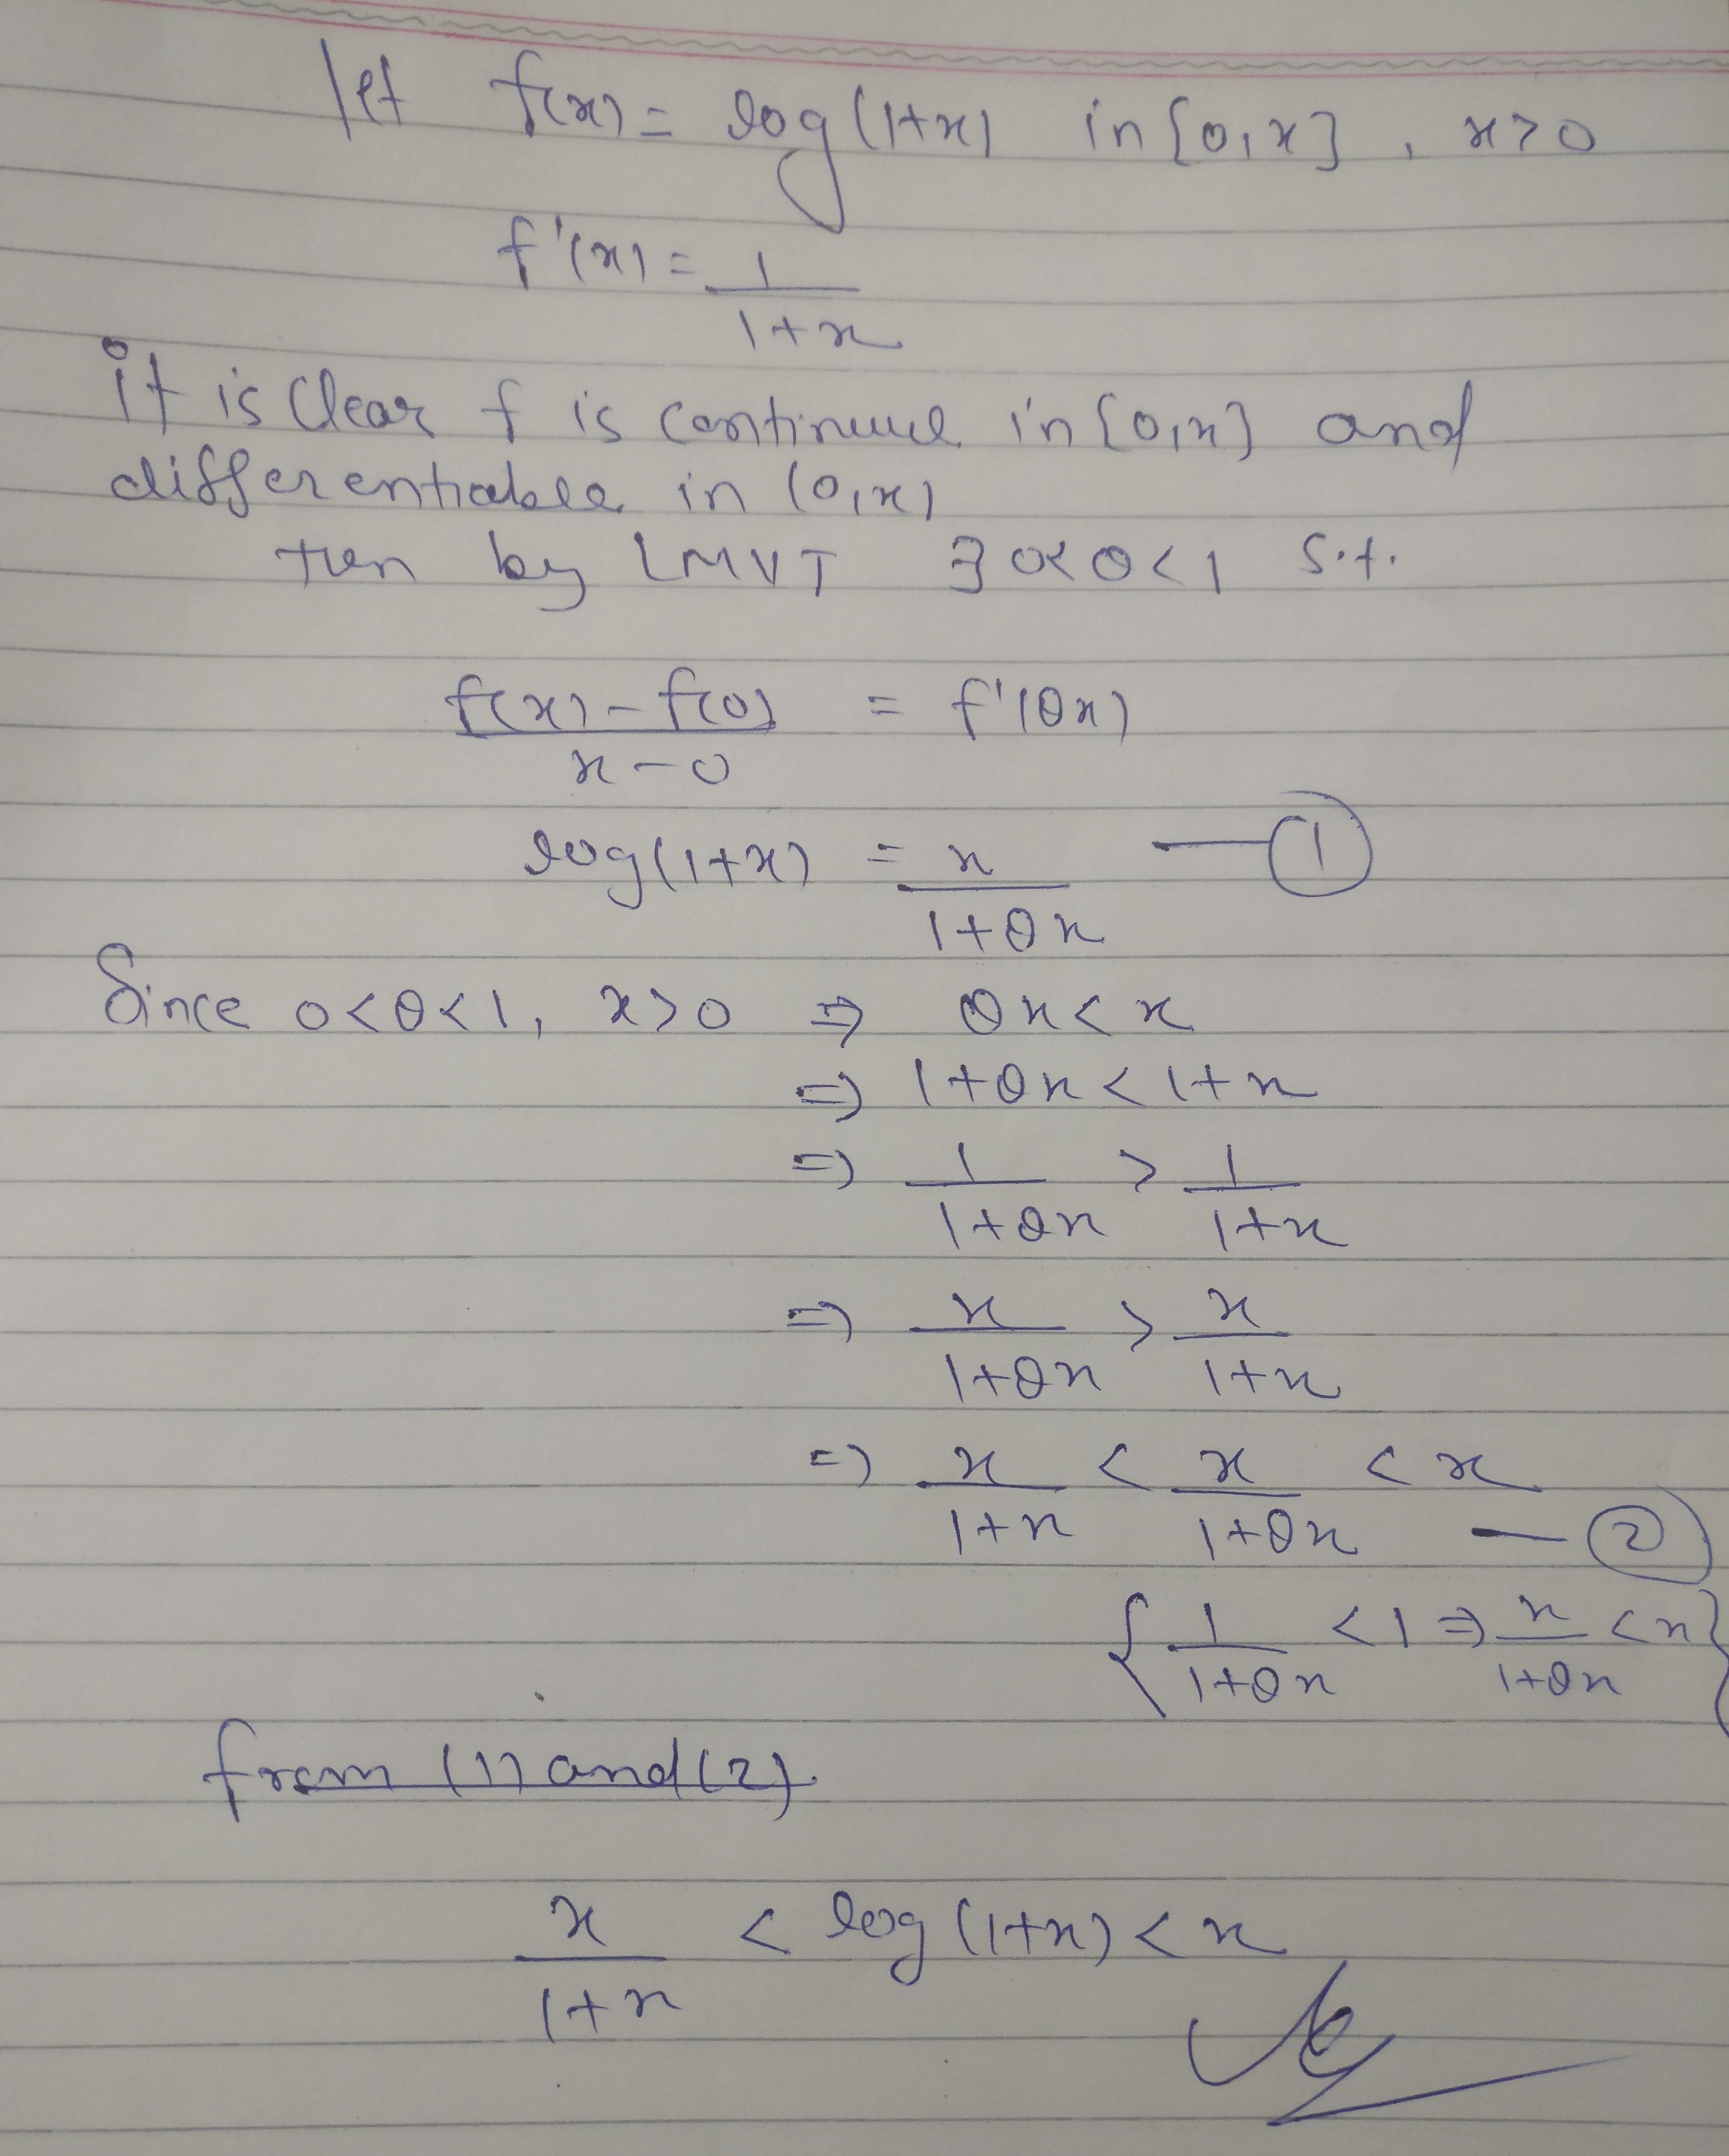 let f(x) = log(1+x) in [0,x], x>0
f'(x) = 1/(1+x)
it is clear f is continuous in [0,x] and
differentiable in (0,x)
then by LMVT ∃ 0<θ<1 s.t.
(f(x) - f(0))/(x-0) = f'(θx)
log(1+x) = x/(1+θx) — ①
Since 0<θ<1, x>0 ⇒ θx < x
⇒ 1+θx < 1+x
⇒ 1/(1+θx) > 1/(1+x)
⇒ x/(1+θx) > x/(1+x)
⇒ x/(1+x) < x/(1+θx) < x — ②
{1/(1+θx) < 1 ⇒ x/(1+θx) < x}
from (1) and (2).
x/(1+x) < log(1+x) < x